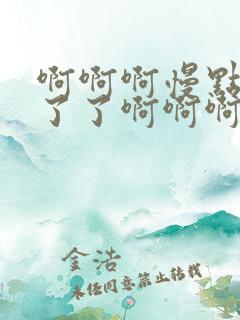 啊啊啊慢點
了了啊啊啊
金浩
未经同意禁止转载